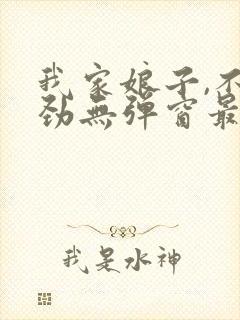 我家娘子,不
劲無彈窗最
我是水神